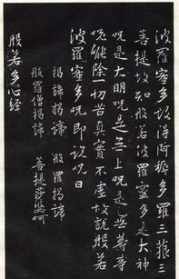 波羅蜜多故得阿耨多羅三藐三
菩提故知般若波羅蜜多是大神
呪是大明呪是無上呪是無等等
呪能除一切苦真實不虛故說般若
波羅蜜多呪即說呪曰
揭諦揭諦 般羅揭諦
般羅僧揭諦 菩提莎婆呵
般若多心經